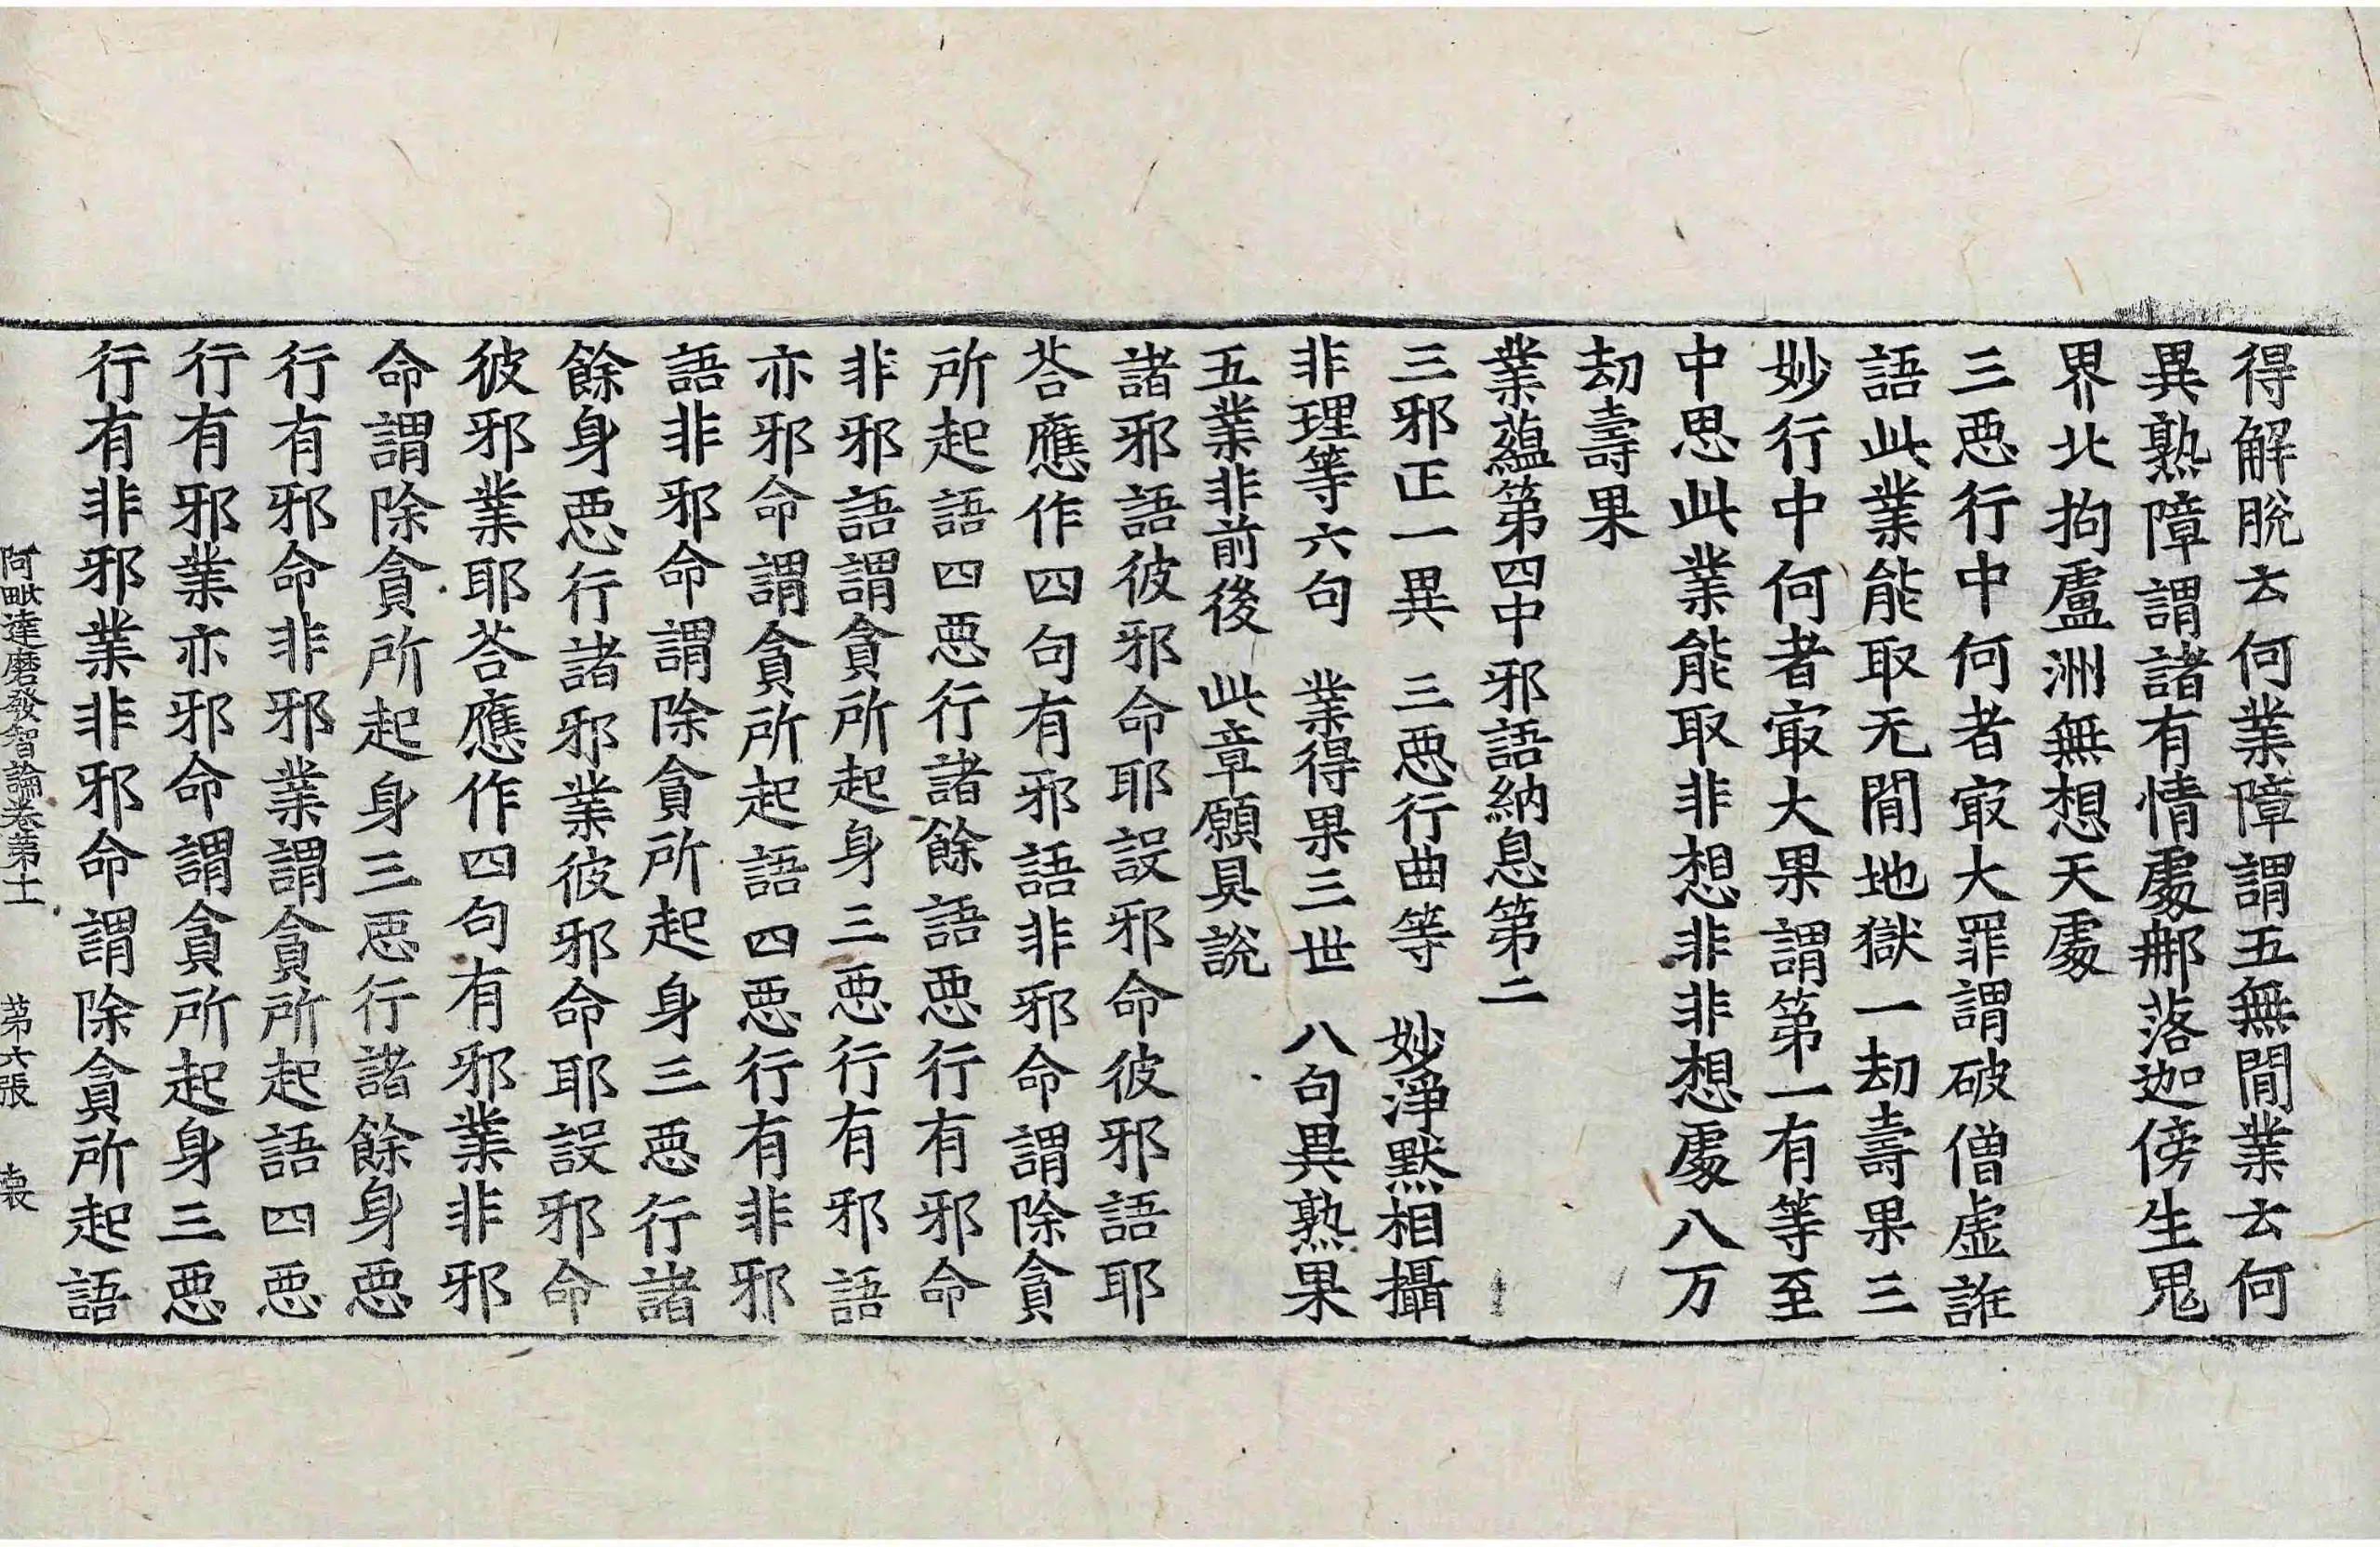 得解脫云何業障謂五無閒業云何
異熟障謂諸有情處㭵落迦傍生鬼
界北拘盧洲無想天處
三惡行中何者㝡大罪謂破僧虛誑
語此業能取无閒地獄一劫壽果三
妙行中何者㝡大果謂第一有等至
中思此業能取非想非非想處八万
劫壽果
業蘊第四中邪語納息第二
三邪正一異　三惡行曲等　妙淨默相攝
非理等六句　業得果三世　八句異熟果
五業非前後　此章願具說
諸邪語彼邪命耶設邪命彼邪語耶
荅應作四句有邪語非邪命謂除貪
所起語四惡行諸餘語惡行有邪命
非邪語謂貪所起身三惡行有邪語
亦邪命謂貪所起語四惡行有非邪
語非邪命謂除貪所起身三惡行諸
餘身惡行諸邪業彼邪命耶設邪命
彼邪業耶荅應作四句有邪業非邪
命謂除貪所起身三惡行諸餘身惡
行有邪命非邪業謂貪所起語四惡
行有邪業亦邪命謂貪所起身三惡
行有非邪業非邪命謂除貪所起語
阿毗達磨發智論卷第十一　第六張